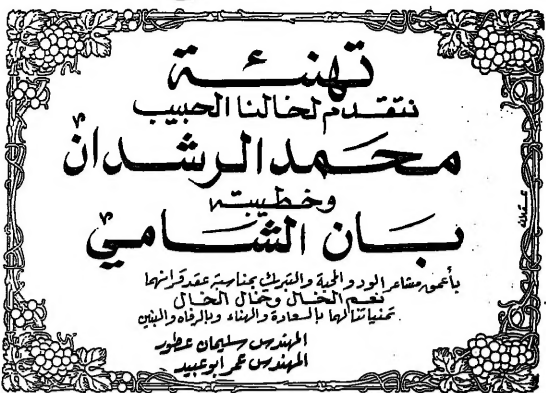 تهنئة
نتقدم لخالنا الحبيب
محمد الرشدان
وخطيبته
بان الشامي
بأعمق مشاعر الود والمحبة والتبريك بمناسبة عقد قرانهما
نعم الخال وخال الخال
تمنياتنا لهما بالسعادة والهناء وبالرفاه والبنين
المهندس سليمان عطور
المهندس عمر ابو عبيد